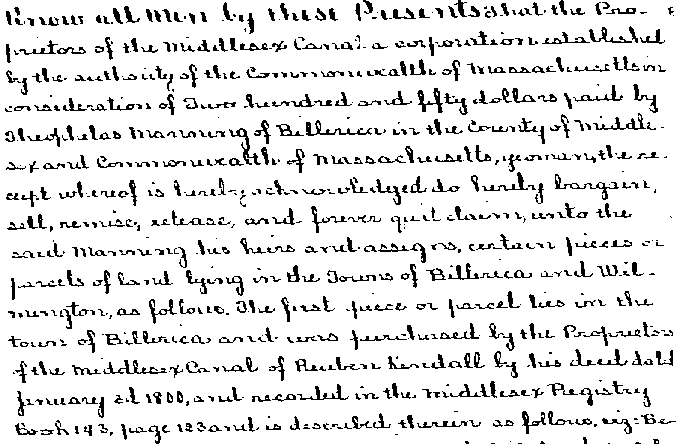 Know all Men by these Presents that the Pro-
prietors of the Middlesex Canal a corporation established
by the authority of the Commonwealth of Massachusetts in
consideration of Two hundred and fifty dollars paid by
Theophelas Manning of Billerica in the County of Middle-
sex and Commonwealth of Massachusetts, yeoman, the re-
ceipt whereof is hereby acknowledged do hereby bargain,
sell, remise, release, and forever quit claim, unto the
said Manning his heirs and assigns, certain pieces or
parcels of land lying in the Towns of Billerica and Wil-
mington, as follows. The first piece or parcel lies in the
town of Billerica and was purchased by the Proprietors
of the Middlesex Canal of Reuben Kendall by his deed datd
January 2d 1800, and recorded in the Middlesex Registry
Book 143, page 123 and is described therein as follows, viz: Be-